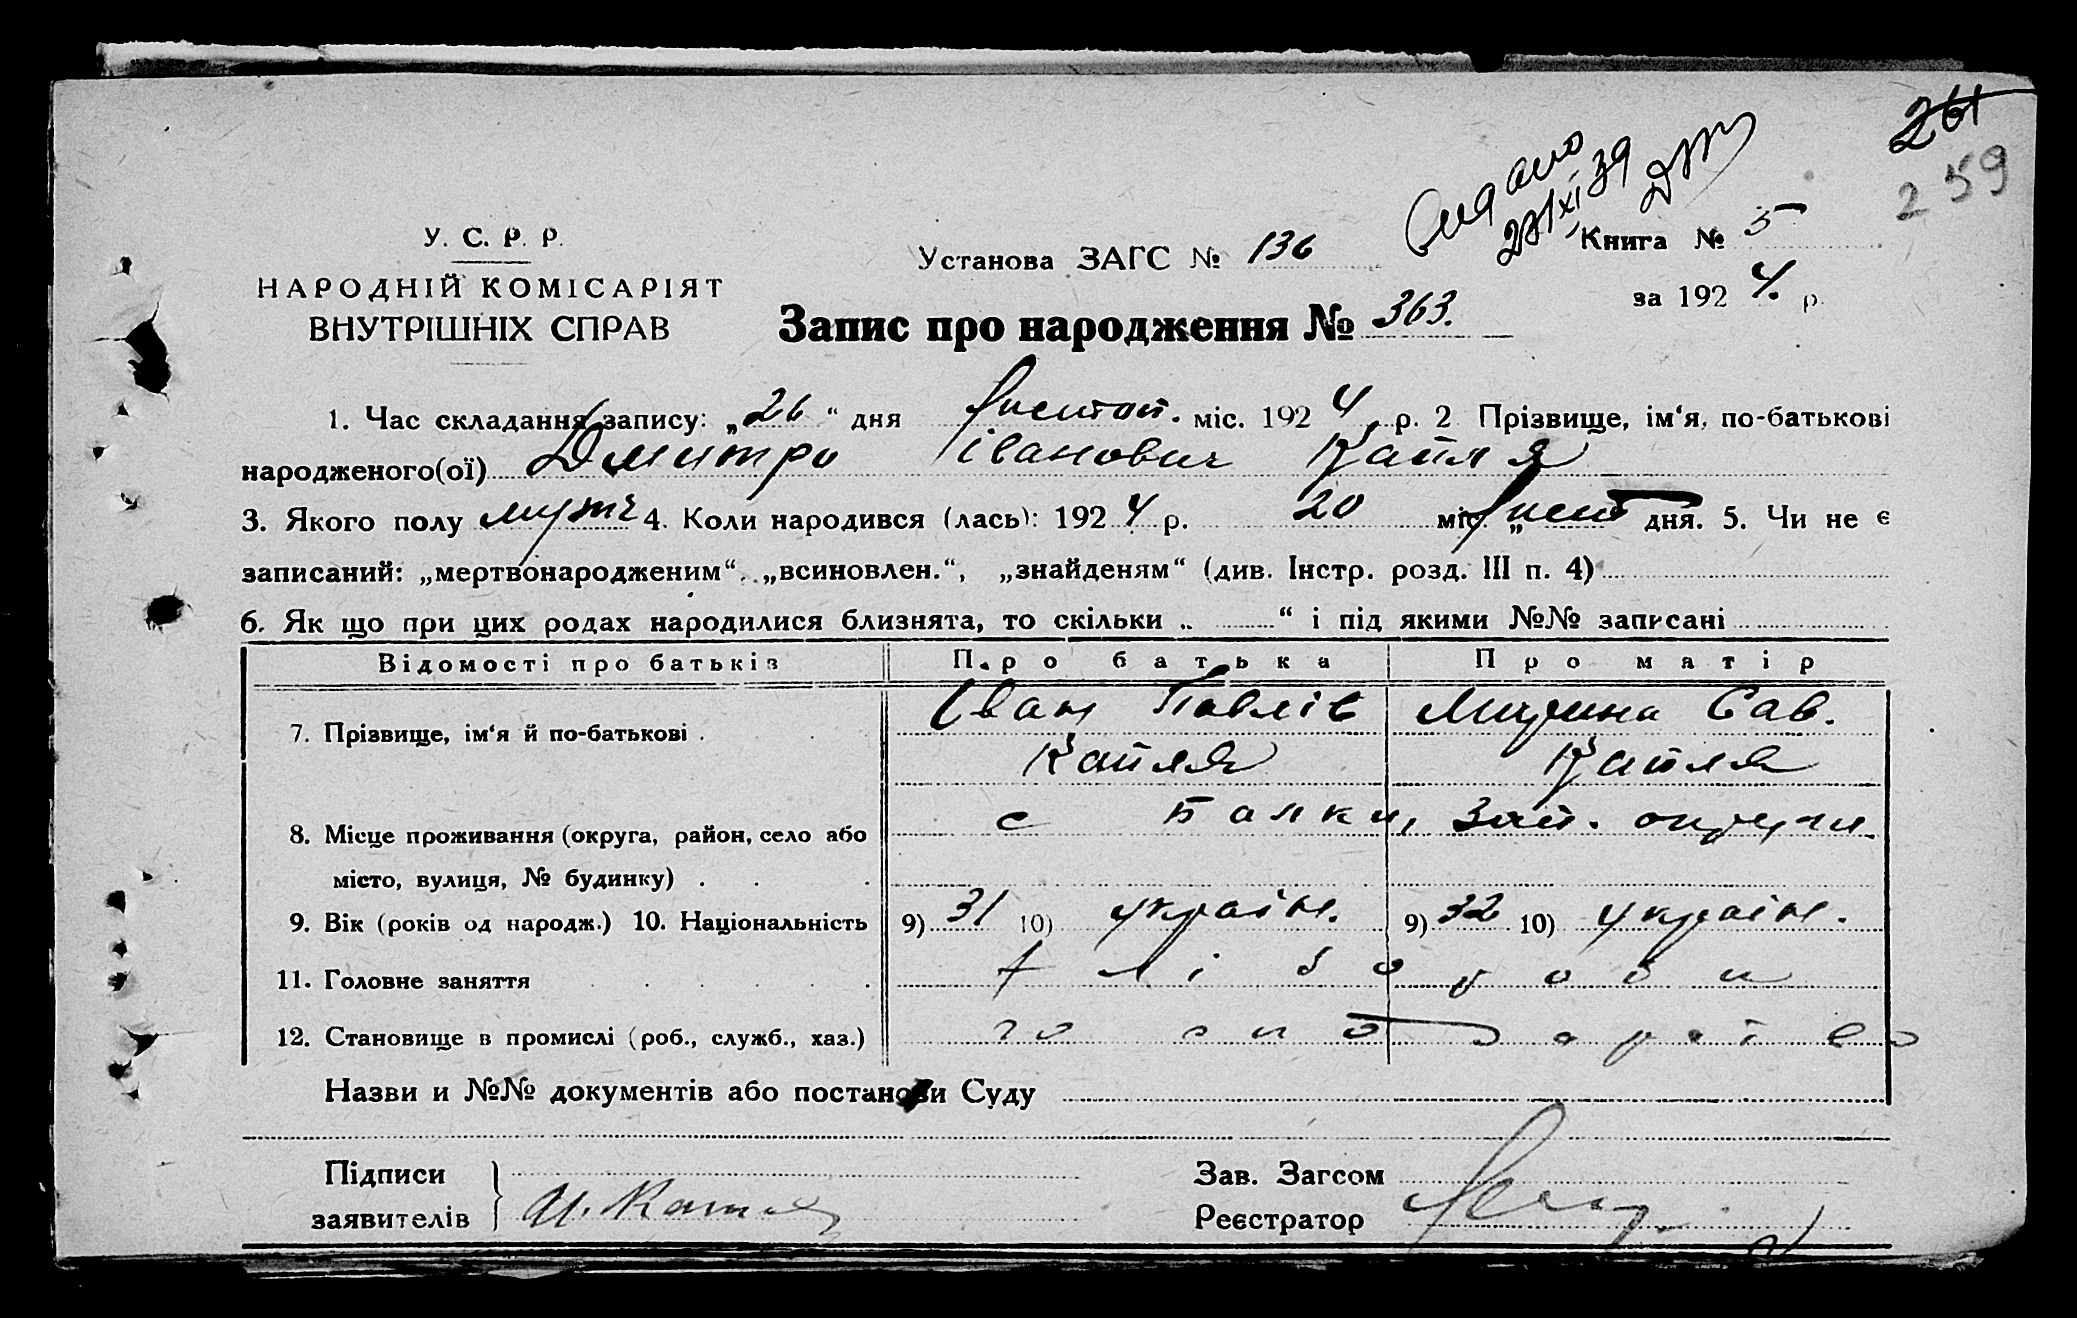 261
259
Видано
27/XI 39
У. С. Р. Р.
НАРОДНІЙ КОМІСАРІЯТ
ВНУТРІШНІХ СПРАВ
Установа ЗАГС № 136
Книга № 5
за 1924. р.
Запис про народження № 363.
1. Час складання запису: „26“ дня листоп. міс. 1924 р. 2 Прізвище, ім‘я, по-батькові
народженого(ої) Дмитро Іванович Капля
3. Якого полу муж 4. Коли народився (лась): 1924 р. 20 міс. „лист дня. 5. Чи не є
записаний: „мертвонародженим“, „всиновлен.“, „знайденям“ (див. Інстр. розд. III п. 4)
6. Як що при цих родах народилися близнята, то скільки „ “ і під якими №№ записані
Відомості про батьків Про батька Про матір
7. Прізвище, ім‘я й по-батькові . Іван Павлів Мирина Сав.
Капля Капля
8. Місце проживання (округа, район, село або с Балки, Зап. округи
місто, вулиця, № будинку) . . .
9. Вік (років од народж.) 10. Національність 9) 31 10) україн. 9) 32 10) україн.
11. Головне заняття хлібороби
12. Становище в промислі (роб., служб., хаз.)
Назви и №№ документів або постанови Суду
Підписи
заявителів } И. Капля
Зав. Загсом
Реєстратор